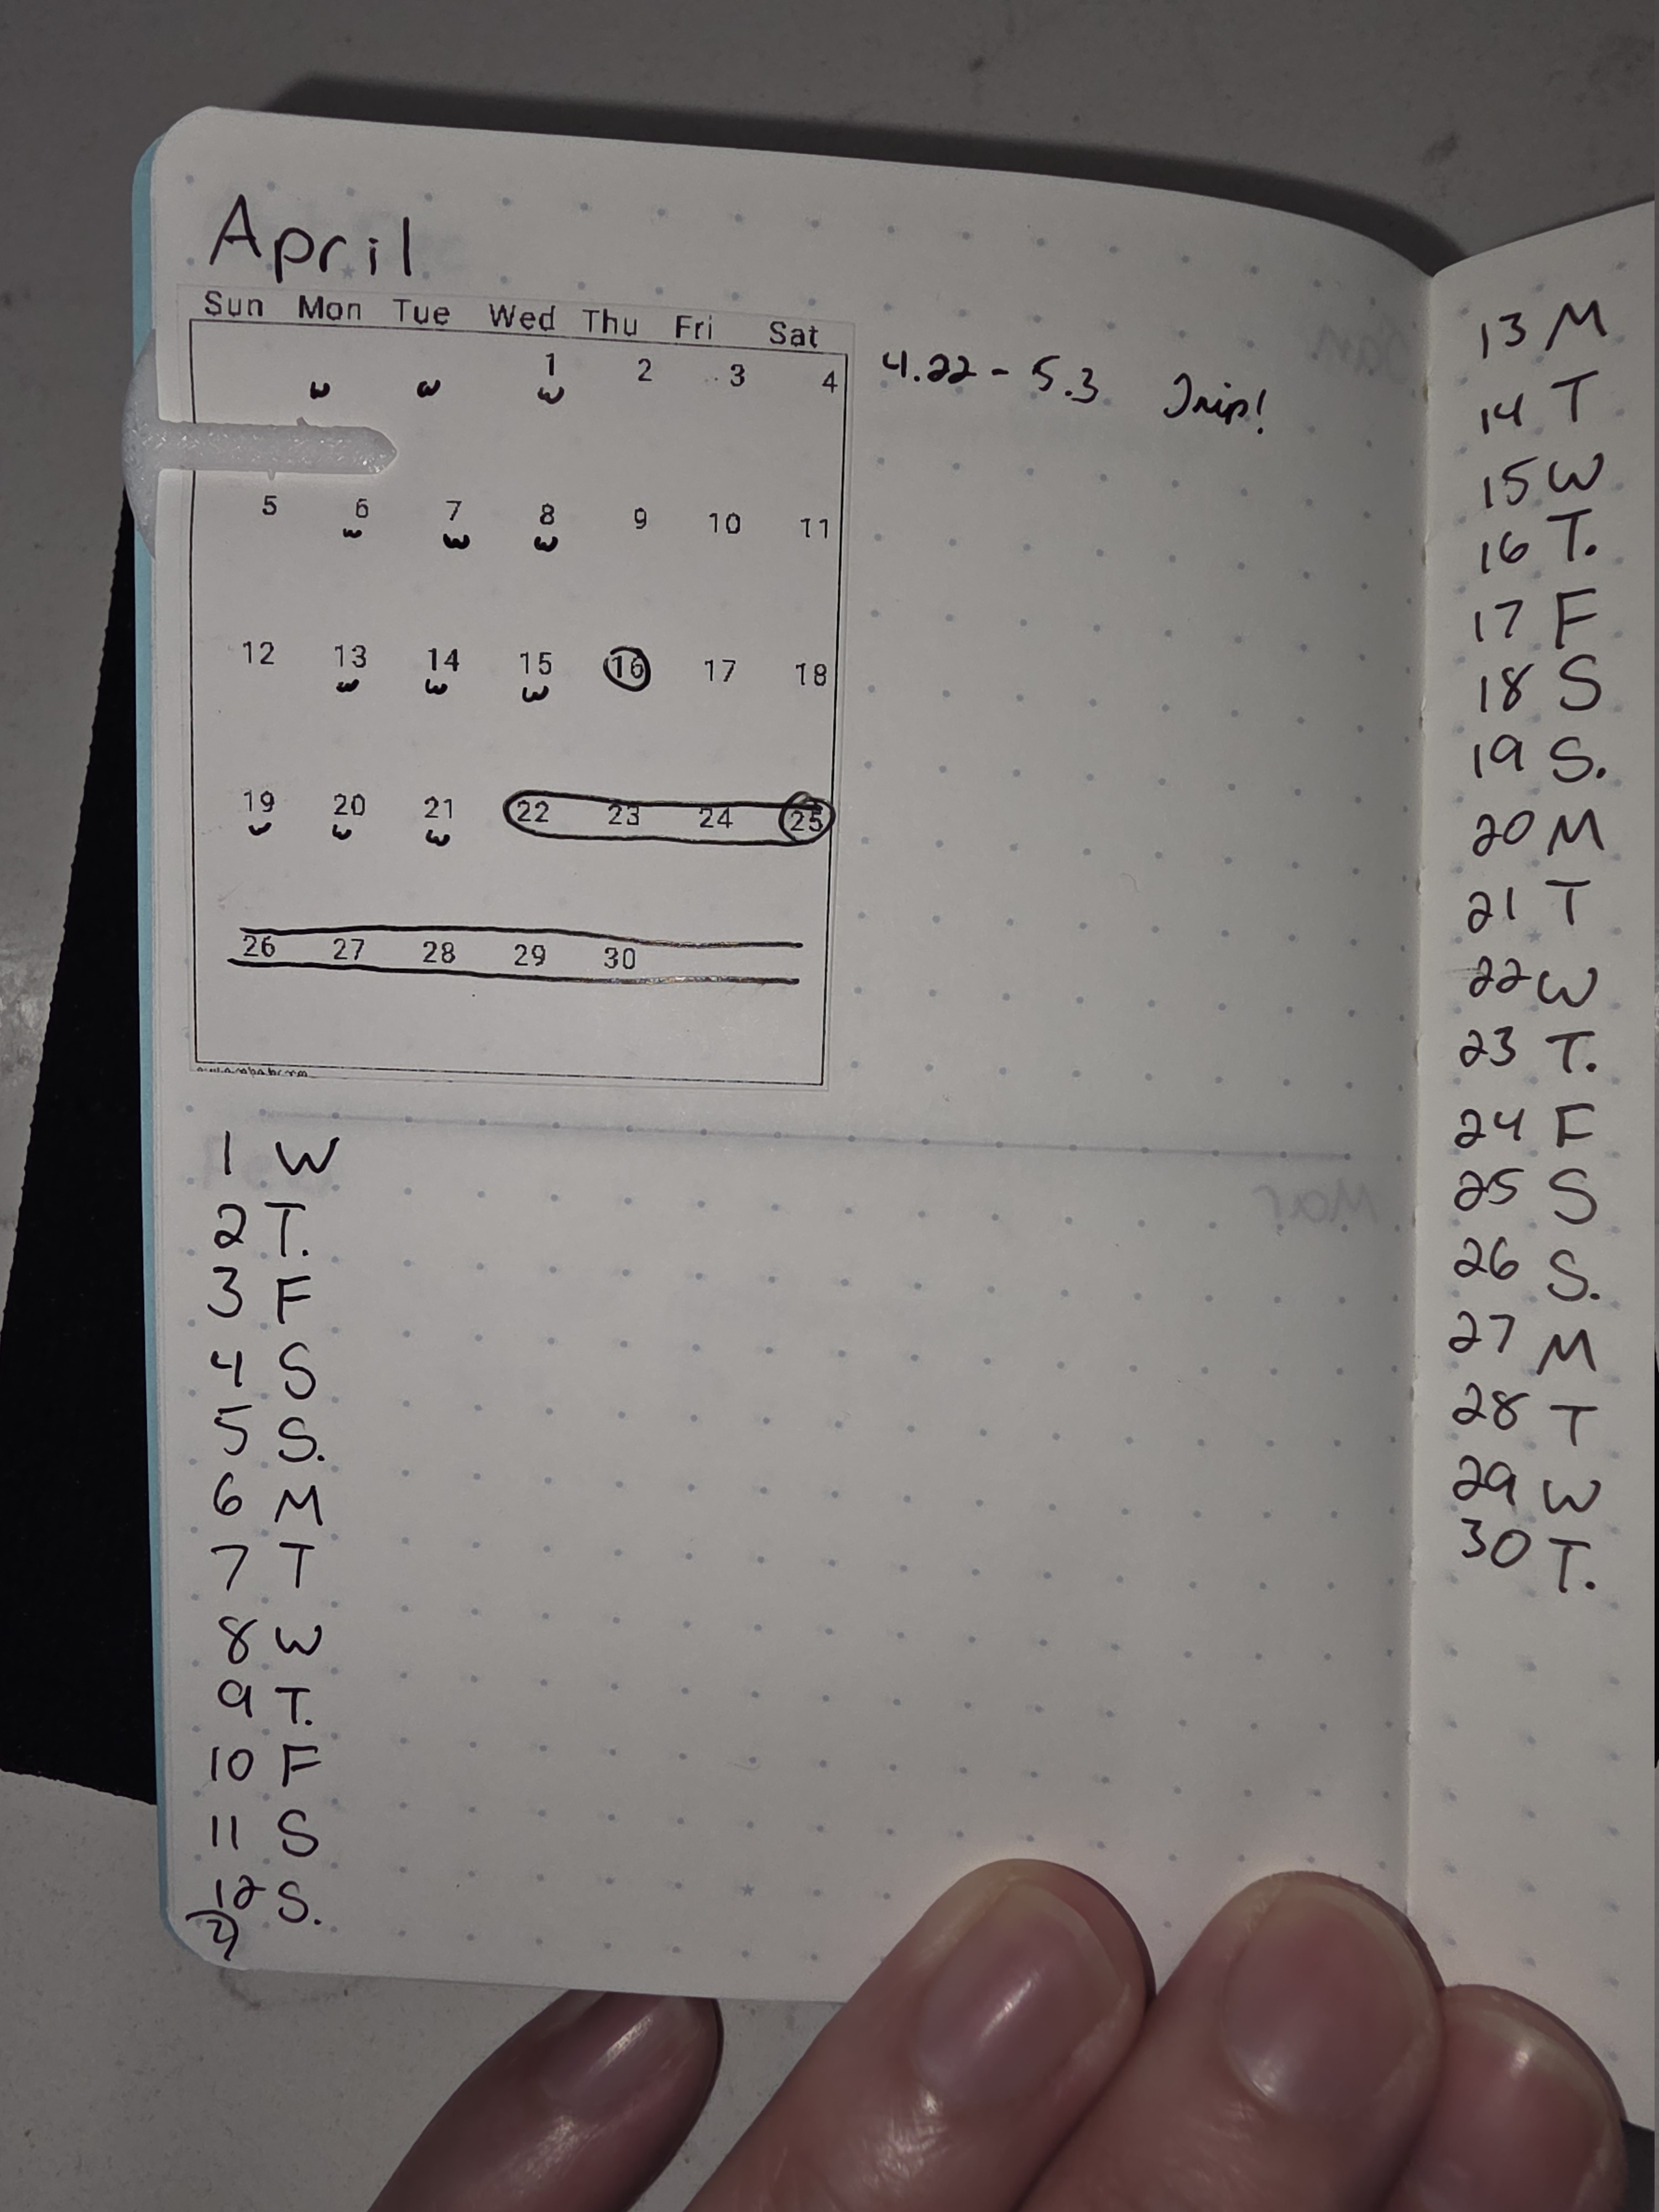 April
Sun Mon Tue Wed Thu Fri Sat
1 2 3 4
w w w
5 6 7 8 9 10 11
w w w
12 13 14 15 16 17 18
w w w
19 20 21 22 23 24 25
w w
26 27 28 29 30
4.22 - 5.3 Trip!
1 W
2 T.
3 F
4 S
5 S.
6 M
7 T
8 W
9 T.
10 F
11 S
12 S.
13 M
14 T
15 W
16 T.
17 F
18 S
19 S.
20 M
21 T
22 W
23 T.
24 F
25 S
26 S.
27 M
28 T
29 W
30 T.
Mar